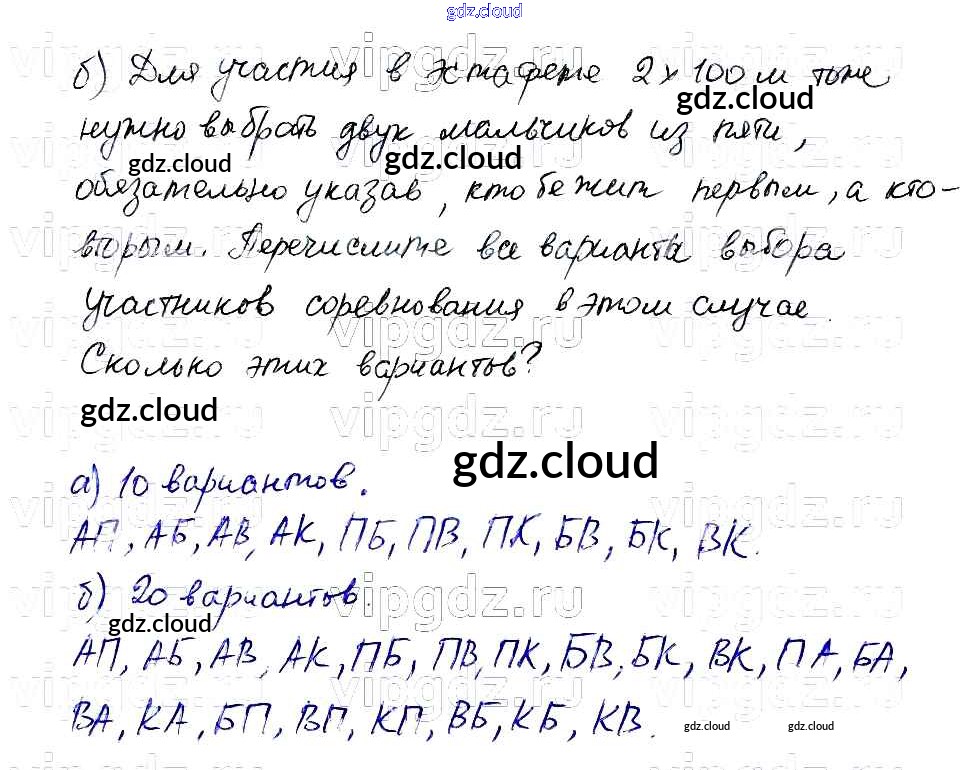 gdz.cloud
б) Для участия в эстафете 2×100 м тоже
gdz.cloud
нужно выбрать двух мальчиков из пяти,
gdz.cloud gdz.cloud
обязательно указав, кто бежит первым, а кто-
вторым. Перечислите все варианты выбора
участников соревнования в этом случае.
Сколько этих вариантов?
gdz.cloud
gdz.cloud
а) 10 вариантов.
АП, АБ, АВ, АК, ПБ, ПВ, ПК, БВ, БК, ВК.
б) 20 вариантов.
gdz.cloud
АП, АБ, АВ, АК, ПБ, ПВ, ПК, БВ, БК, ВК, ПА, БА,
ВА, КА, БП, ВП, КП, ВБ, КБ, КВ.
gdz.cloud gdz.cloud
vipgdz.ru